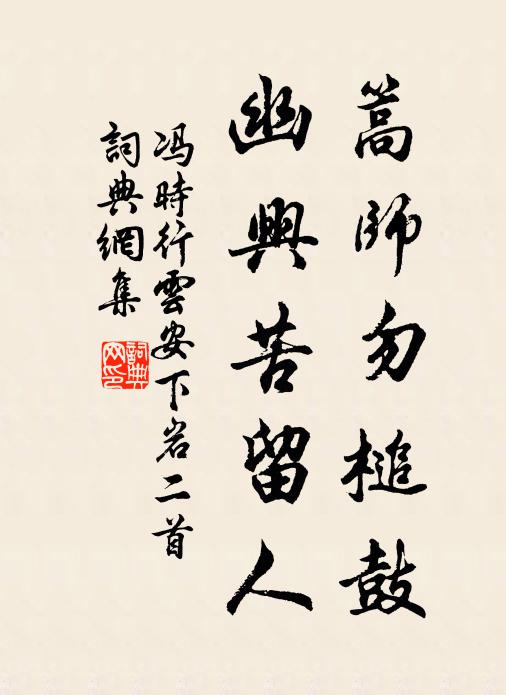 篙師勿槌鼓
幽興苦留人
冯時行雲安下岩二首
詞典網集
詞典网印